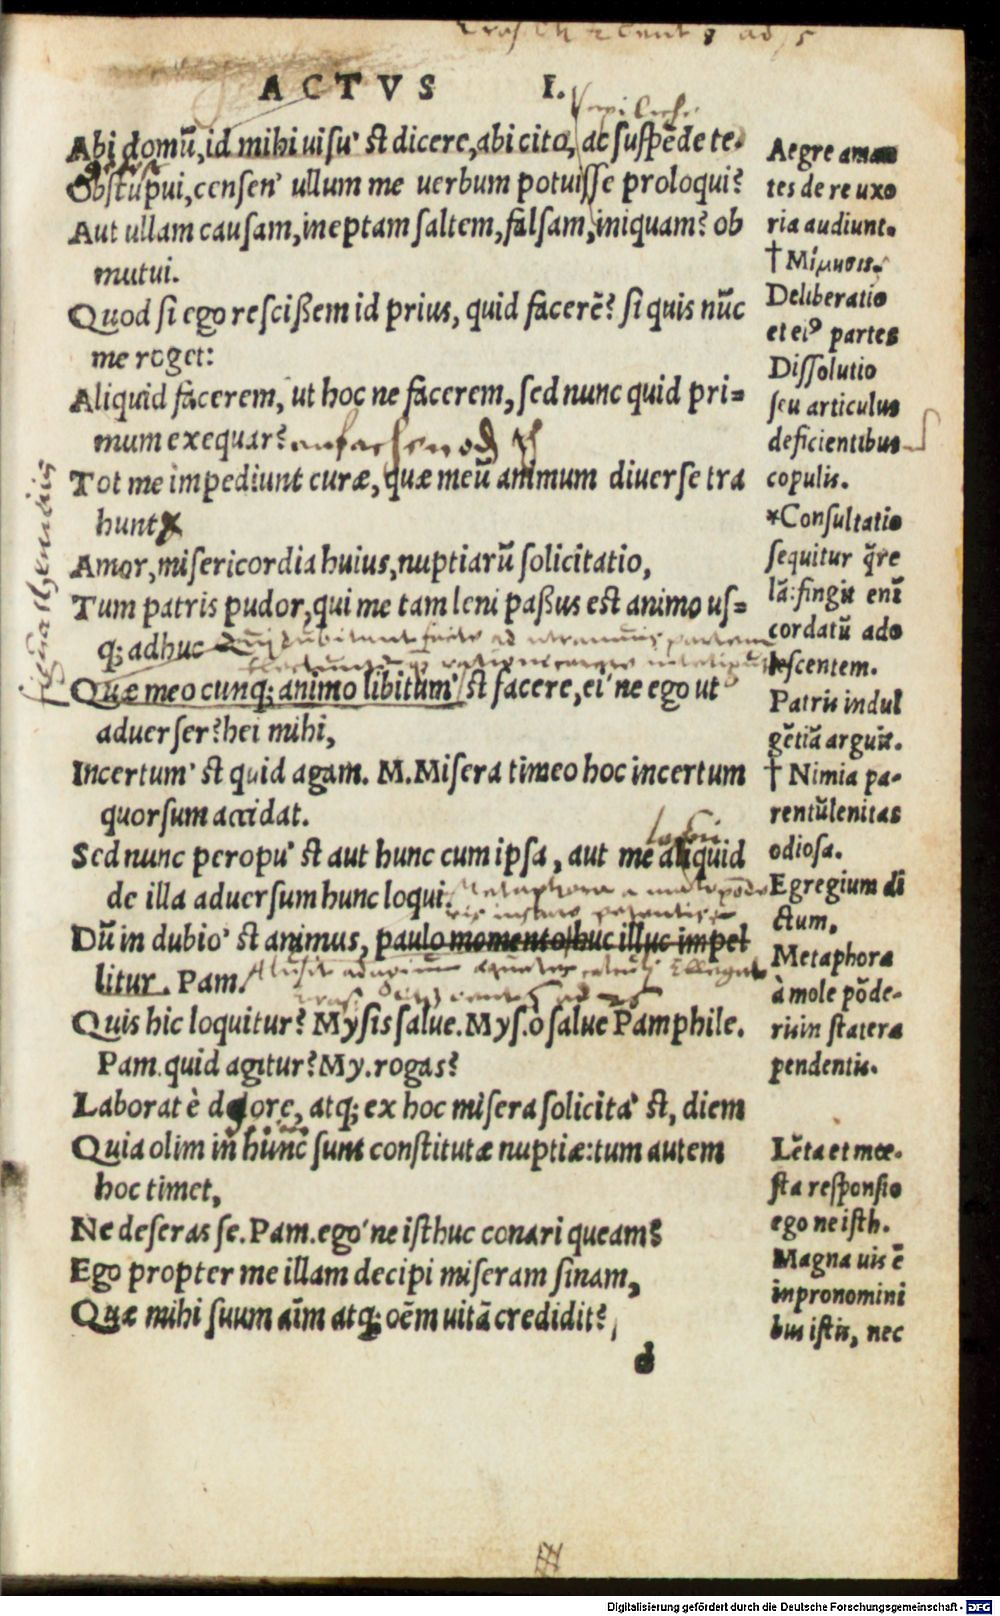 ACTVS I.
Abi domū, id mihi uisu' st dicere, abi cito, ac suspēde te.
Obstupui, censen' ullum me uerbum potuisse proloqui?
Aut ullam causam, ineptam saltem, falsam, iniquam? ob
mutui.
Quod si ego rescißem id prius, quid facerē? si quis nūc
me roget:
Aliquid facerem, ut hoc ne facerem, sed nunc quid pri=
mum exequar?
Tot me impediunt curæ, quæ meū animum diuerse tra
hunt
Amor, misericordia huius, nuptiarū solicitatio,
Tum patris pudor, qui me tam leni paßus est animo us=
q; adhuc
Quæ meo cunq; animo libitum' st facere, ei' ne ego ut
aduerser? hei mihi,
Incertum' st quid agam. M. Misera timeo hoc incertum
quorsum accidat.
Sed nunc peropu' st aut hunc cum ipsa, aut me aliquid
de illa aduersum hunc loqui.
Dū in dubio' st animus, paulo momento huc illuc impel
litur. Pam.
Quis hic loquitur? Mysis salue. Mys. ò salue Pamphile.
Pam. quid agitur? My. rogas?
Laborat è dolore, atq; ex hoc misera solicita' st, diem
Quia olim in hunc sunt constitutæ nuptiæ: tum autem
hoc timet,
Ne deseras se. Pam. ego' ne isthuc conari queam?
Ego propter me illam decipi miseram sinam,
Quæ mihi suum aīm atq; oēm uitā credidit?
d
Aegre aman
tes de re uxo
ria audiunt.
† Μίμησις.
Deliberatio
et eiꝰ partes
Dissolutio
seu articulus
deficientibus
copulis.
*Consultatio
sequitur q̄re
lā: fingit enī
cordatū ado
lescentem.
Patris indul
gētiā arguit.
† Nimia pa-
rentū lenitas
odiosa.
Egregium di
ctum.
Metaphora
à mole pōde-
ris in statera
pendentis.
Lēta et mœ-
sta responsio
ego ne isth.
Magna uis ē
in pronomini
bus istis, nec
Digitalisierung gefördert durch die Deutsche Forschungsgemeinschaft - DFG